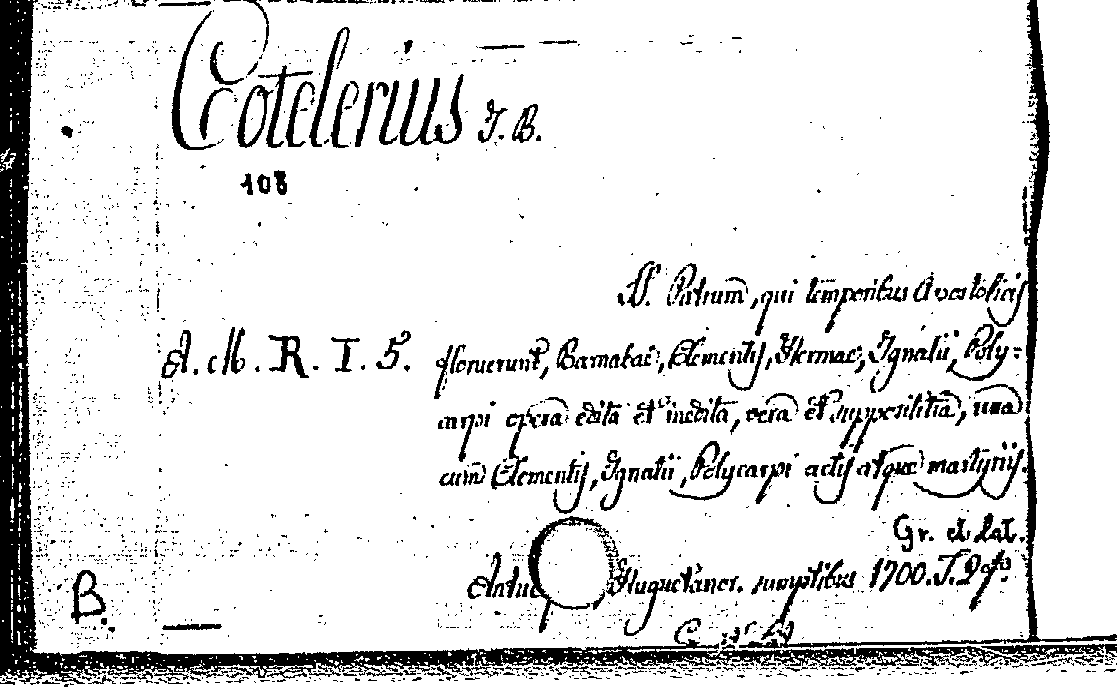 Cotelerius J. B.
108
SS. Patrum, qui temporibus Apostolicis
A. M. R. I. 5. floruerunt, Barnabae, Clementis, Hermae, Ignatii, Poly-
carpi opera edita et inedita, vera et supposititia, una
cum Clementis, Ignatii, Polycarpi actis atque martyriis.
Gr. et Lat.
Huguetanor. sumptibus 1700. T. 2
B.